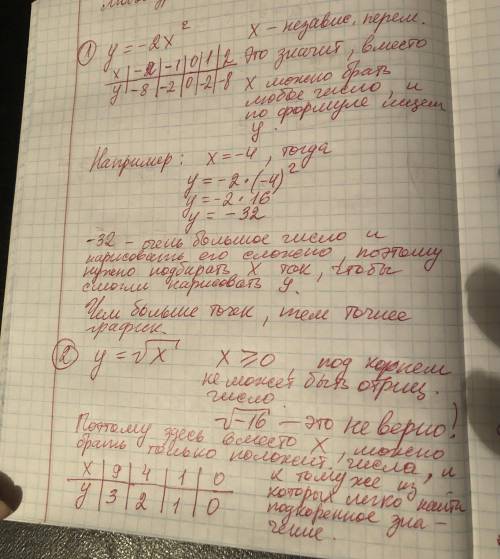 ① y = -2x²
x - независ. перем.
x | -2 | -1 | 0 | 1 | 2
y | -8 | -2 | 0 | -2 | -8
Это значит, вместо
x можно брать
любое число, и
по формуле ищем
y.
Например: x = -4, тогда
y = -2 · (-4)²
y = -2 · 16
y = -32
-32 - очень большое число и
нарисовать его сложно, поэтому
нужно подбирать x так, чтобы
смогли нарисовать y.
Чем больше точек, тем точнее
график.
② y = √x x ⩾ 0, под корнем
не может быть отриц.
число.
√-16 - это не верно!
Поэтому здесь вместо x, можно
брать только положит. числа, и
x | 9 | 4 | 1 | 0
y | 3 | 2 | 1 | 0
к тому же из
которых легко найти
подкоренное зна-
чение.